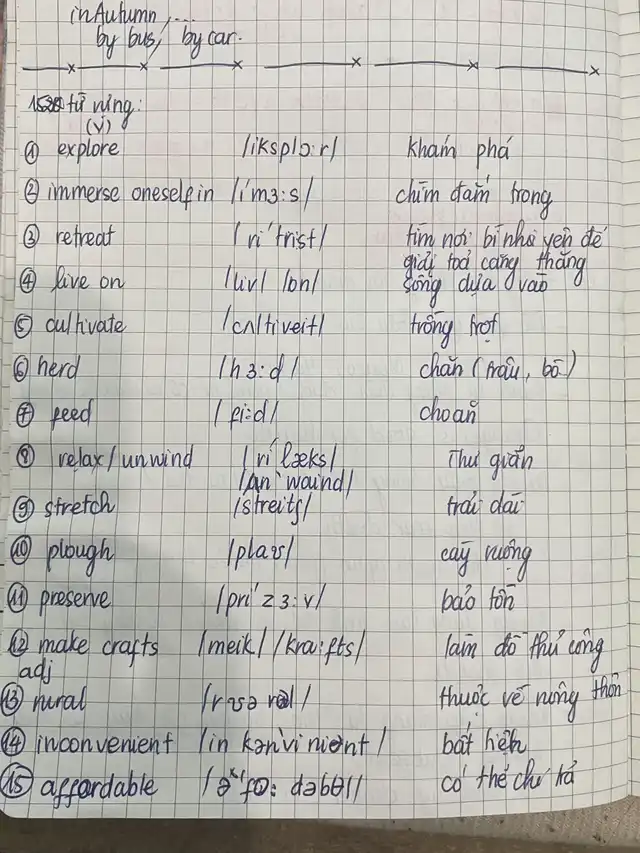 in Autumn, ...
by bus, by car.
từ vựng:
(v)
① explore /iksplɔ:r/ khám phá
② immerse oneself in /i'mɜ:s/ chìm đắm trong
③ retreat /ri'trist/ tìm nơi bình yên để
giải toả căng thẳng
④ live on /liv/ /on/ sống dựa vào
⑤ cultivate /cʌltiveit/ trồng trọt
⑥ herd /hɜ:d/ chăn (trâu, bò)
⑦ feed /fi:d/ cho ăn
⑧ relax/unwind /ri'læks/ Thư giãn
/ʌn'waind/
⑨ stretch /streitʃ/ trải dài
⑩ plough /plaʊ/ cày ruộng
⑪ preserve /pri'zɜ:v/ bảo tồn
⑫ make crafts /meik/ /kra:fts/ làm đồ thủ công
adj
⑬ rural /rʊərəl/ thuộc về nông thôn
⑭ inconvenient /in kən'vi niənt/ bất tiện
⑮ affordable có thể chi trả